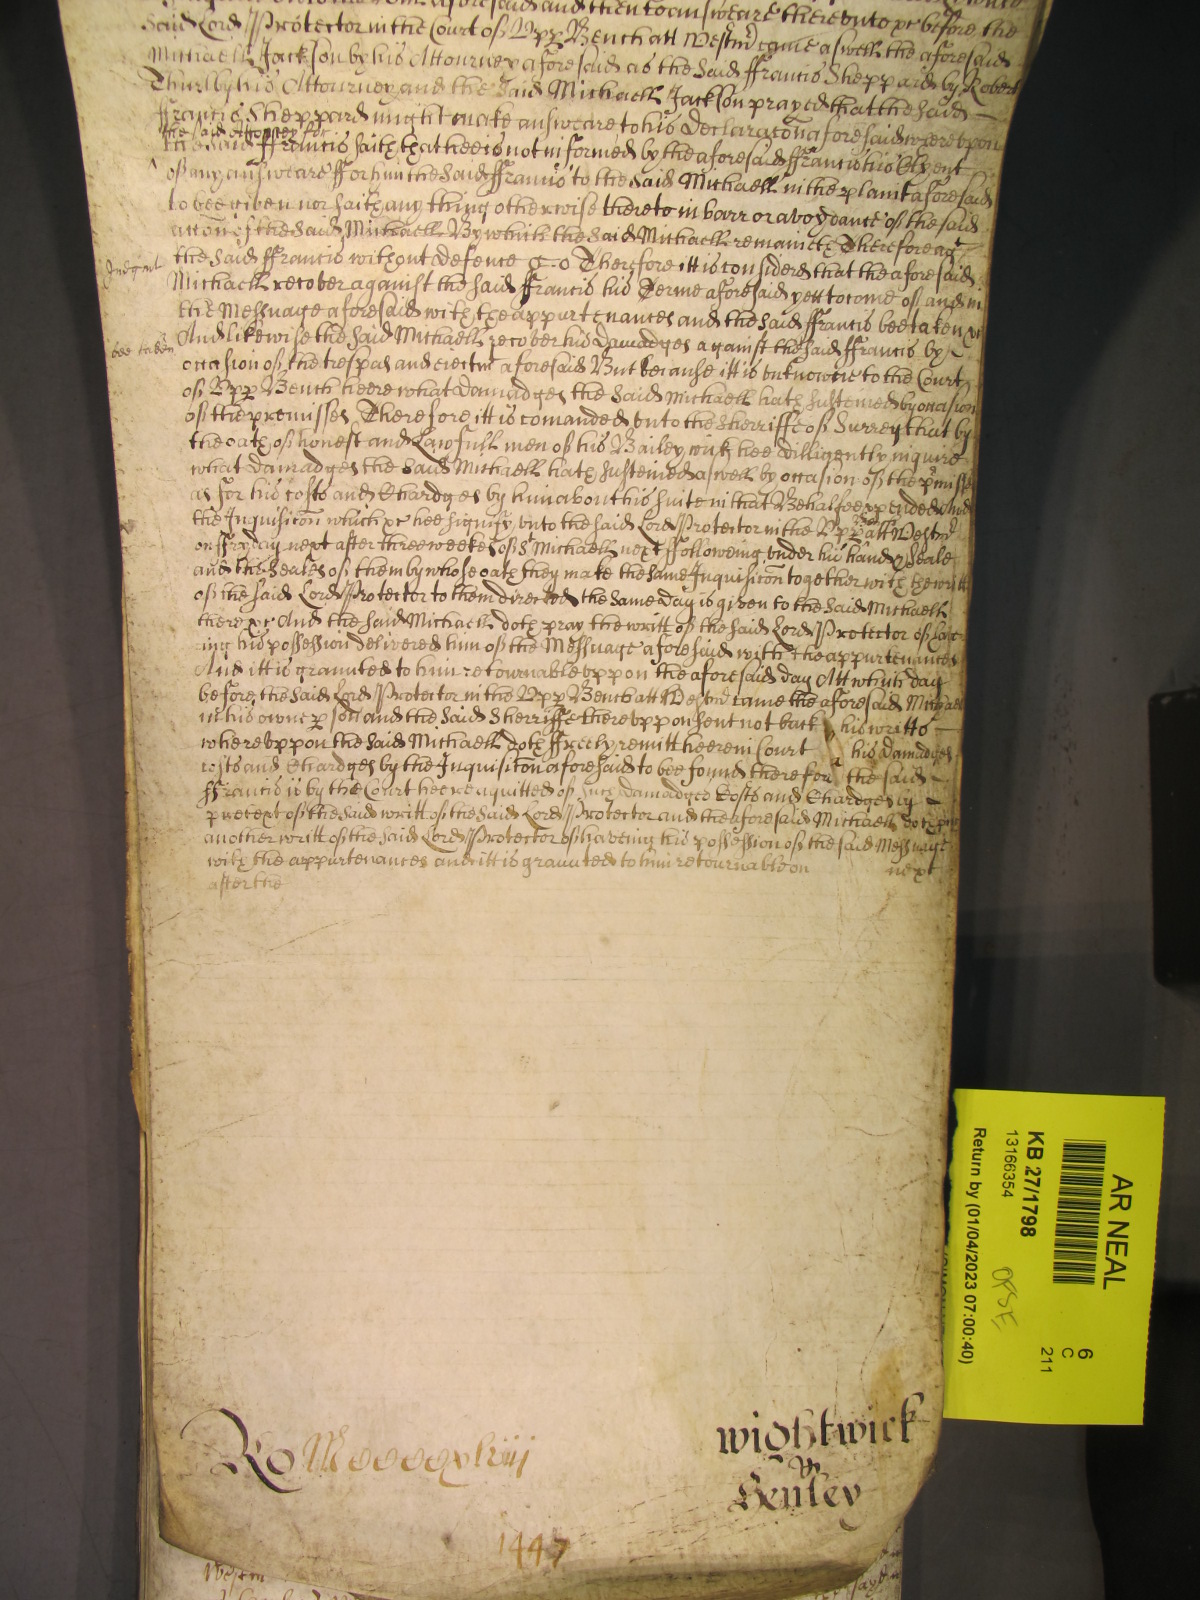 aforesaid and then to answeare thereunto &c before the
Said Lord Protector in the Court of Upp Bench att Westmr came aswell the aforesaid
Michaell Jackson by his Attourney aforesaid as the said ffrancis Sheppard by Robert
Thurlby his Attourney and the said Michaell Jackson prayed that the said
ffrancis Sheppard might make answeare to his declaracon aforesaid whereupon
the said Attorney for
the said ffrancis saith that hee is not informed by the aforesaid ffrancis his Clyent
of any answeare ffor him the said ffrancis to the said Michaell in the plaint aforesaid
to bee given nor saith any thing otherwise thereto in barr or avoydance of the said
accon of the said Michaell By which the said Michaell remaineth Therefore agt
Judgmt
the said ffrancis without defence &c Therefore itt is considered that the aforesaid
Michaell recover against the said ffrancis his Terme aforesaid yett to come of and in
the Messuage aforesaid with the appurtenances and the said ffrancis bee taken &c
bee taken
And likewise the said Michaell recover his damadges against the said ffrancis by
occasion of the trespas and eiectmt aforesaid But because itt is unknowne to the Court
of Upp Bench heere what damadges the said Michaell hath susteined by occasion
of the premisses Therefore itt is comanded unto the Sherriffe of Surrey that by
the oath of honest and Lawfull men of his Bailywick hee dilligently inquire
what damadges the said Michaell hath susteined aswell by occasion of the pmisses
as for his costs and Chardges by him about his suite in that Behalfe expended And
the Inquisicon which &c hee signify unto the said Lord Protector in the Upp att Westmr
on ffryday next after three weekes of St Michaell next ffolloweing under his hand & Seale
and the Seales of them by whose oath they make the same Inquisicon together with the writt
of the said Lord Protector to them directed the same day is given to the said Michaell
there &c And the said Michaell doth pray the writt of the said Lord Protector of have
ing his possession delivered him of the Messuage aforesaid with the appurtenances
And itt is graunted to him retournable uppon the aforesaid day Att which day
before the said Lord Protector in the Upp Bench att Westmr came the aforesaid Michaell
in his owne pson and the said Sherriffe thereuppon sent not back his writts
whereuppon the said Michaell doth ffreely remitt heere in Court his damadges
costs and Chardges by the Inquisicon aforesaid to bee found therefore the said
ffrancis is by the Court heere acquitted of such damadges Costs and Chardges by
pretext of the said writt of the said Lord Protector and the aforesaid Michaell doth pray
another writt of the said Lord Protector of haveing his possession of the said Messuage
with the appurtenances and itt is graunted to him retournable on next
after the
Ro Moooo xliii
wightwick
Henley
1447
Westm
AR NEAL
6
C
211
KB 27/1798
13166354
Return by (01/04/2023 07:00:40)